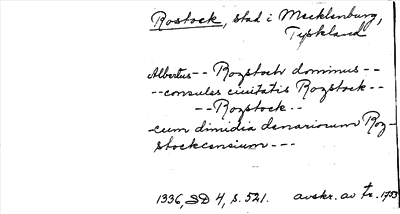 Rostock, stad i Mecklenburg,
Tyskland
Albertus -- Rozstoch dominus --
-- consules ciuitatis Rozstock --
-- Rozstock --
-cum dimidia denariorum Roz-
stockcensium ---
1336, SD 4, s. 521. avskr. av fr. 1753